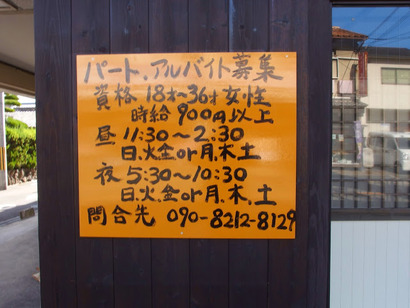 パート.アルバイト募集
資格 18才〜36才女性
時給 900円以上
昼 11:30〜2:30
日.火.金or月.木.土
夜 5:30〜10:30
日.火.金or月.木.土
問合先 090-8212-8129